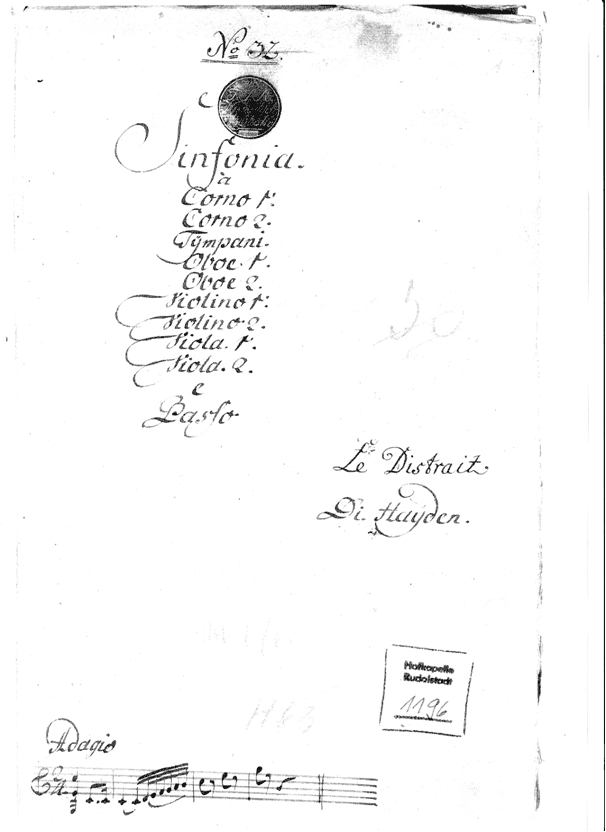 No 32.
Sinfonia.
à
Corno 1.
Corno 2.
Tÿmpani.
Oboe. 1.
Oboe 2.
Violino 1.
Violino. 2.
Viola. 1.
Viola. 2.
e
Basso
Le Distrait.
Di. Haÿden.
Hofkapelle
Rudolstadt
1196
Adagio